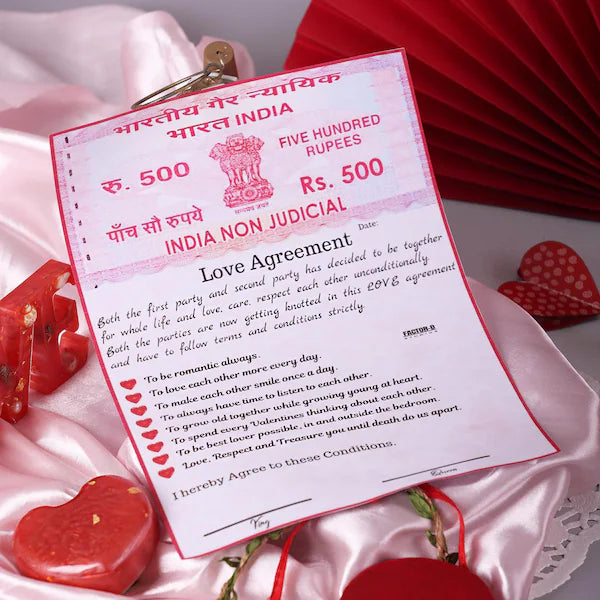 भारतीय गैर न्यायिक
भारत INDIA
रु. 500
FIVE HUNDRED
RUPEES
पाँच सौ रुपये
Rs. 500
सत्यमेव जयते
INDIA NON JUDICIAL
Love Agreement
Date:
Both the first party and second party has decided to be together
for whole life and love, care, respect each other unconditionally.
Both the parties are now getting knotted in this LOVE agreement
and have to follow terms and conditions strictly.
FACTOR-D
To be romantic always.
To love each other more every day.
To make each other smile once a day.
To always have time to listen to each other.
To grow old together while growing young at heart.
To spend every Valentines thinking about each other.
To be best lover possible, in and outside the bedroom.
Love, Respect and Treasure you until death do us apart.
I hereby Agree to these Conditions.